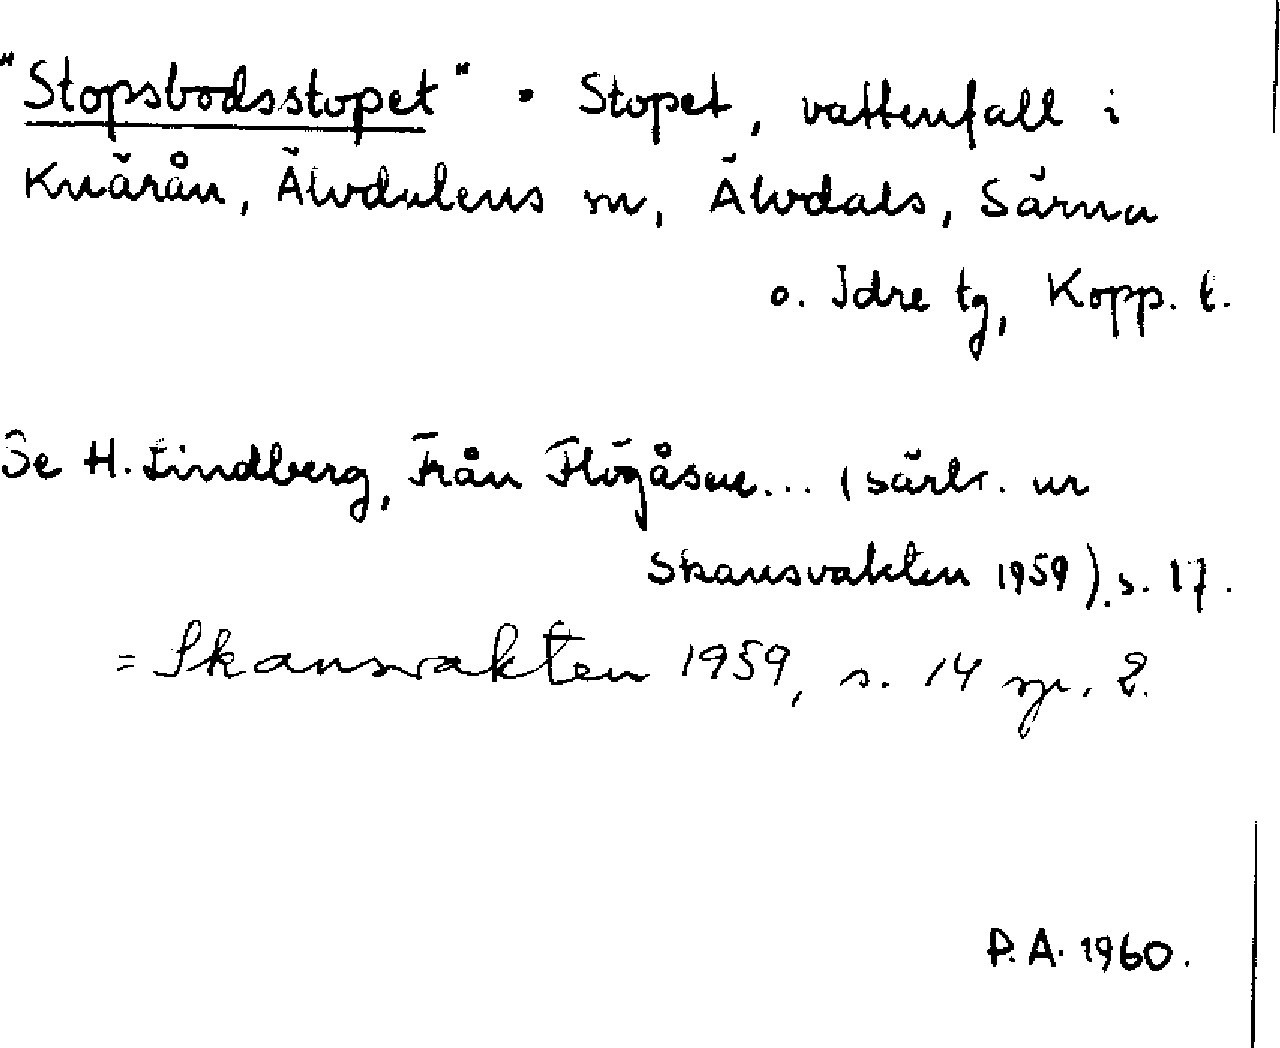 "Stopsbodsstopet" • Stopet, vattenfall i
Knärån, Älvdalens sn, Älvdals, Särna
o. Idre tg, Kopp. l.
Se H. Lindberg, Från Flögåsen... (särtr. ur
Skansvakten 1959), s. 17.
= Skansvakten 1959, s. 14 sp. 2.
P.A. 1960.